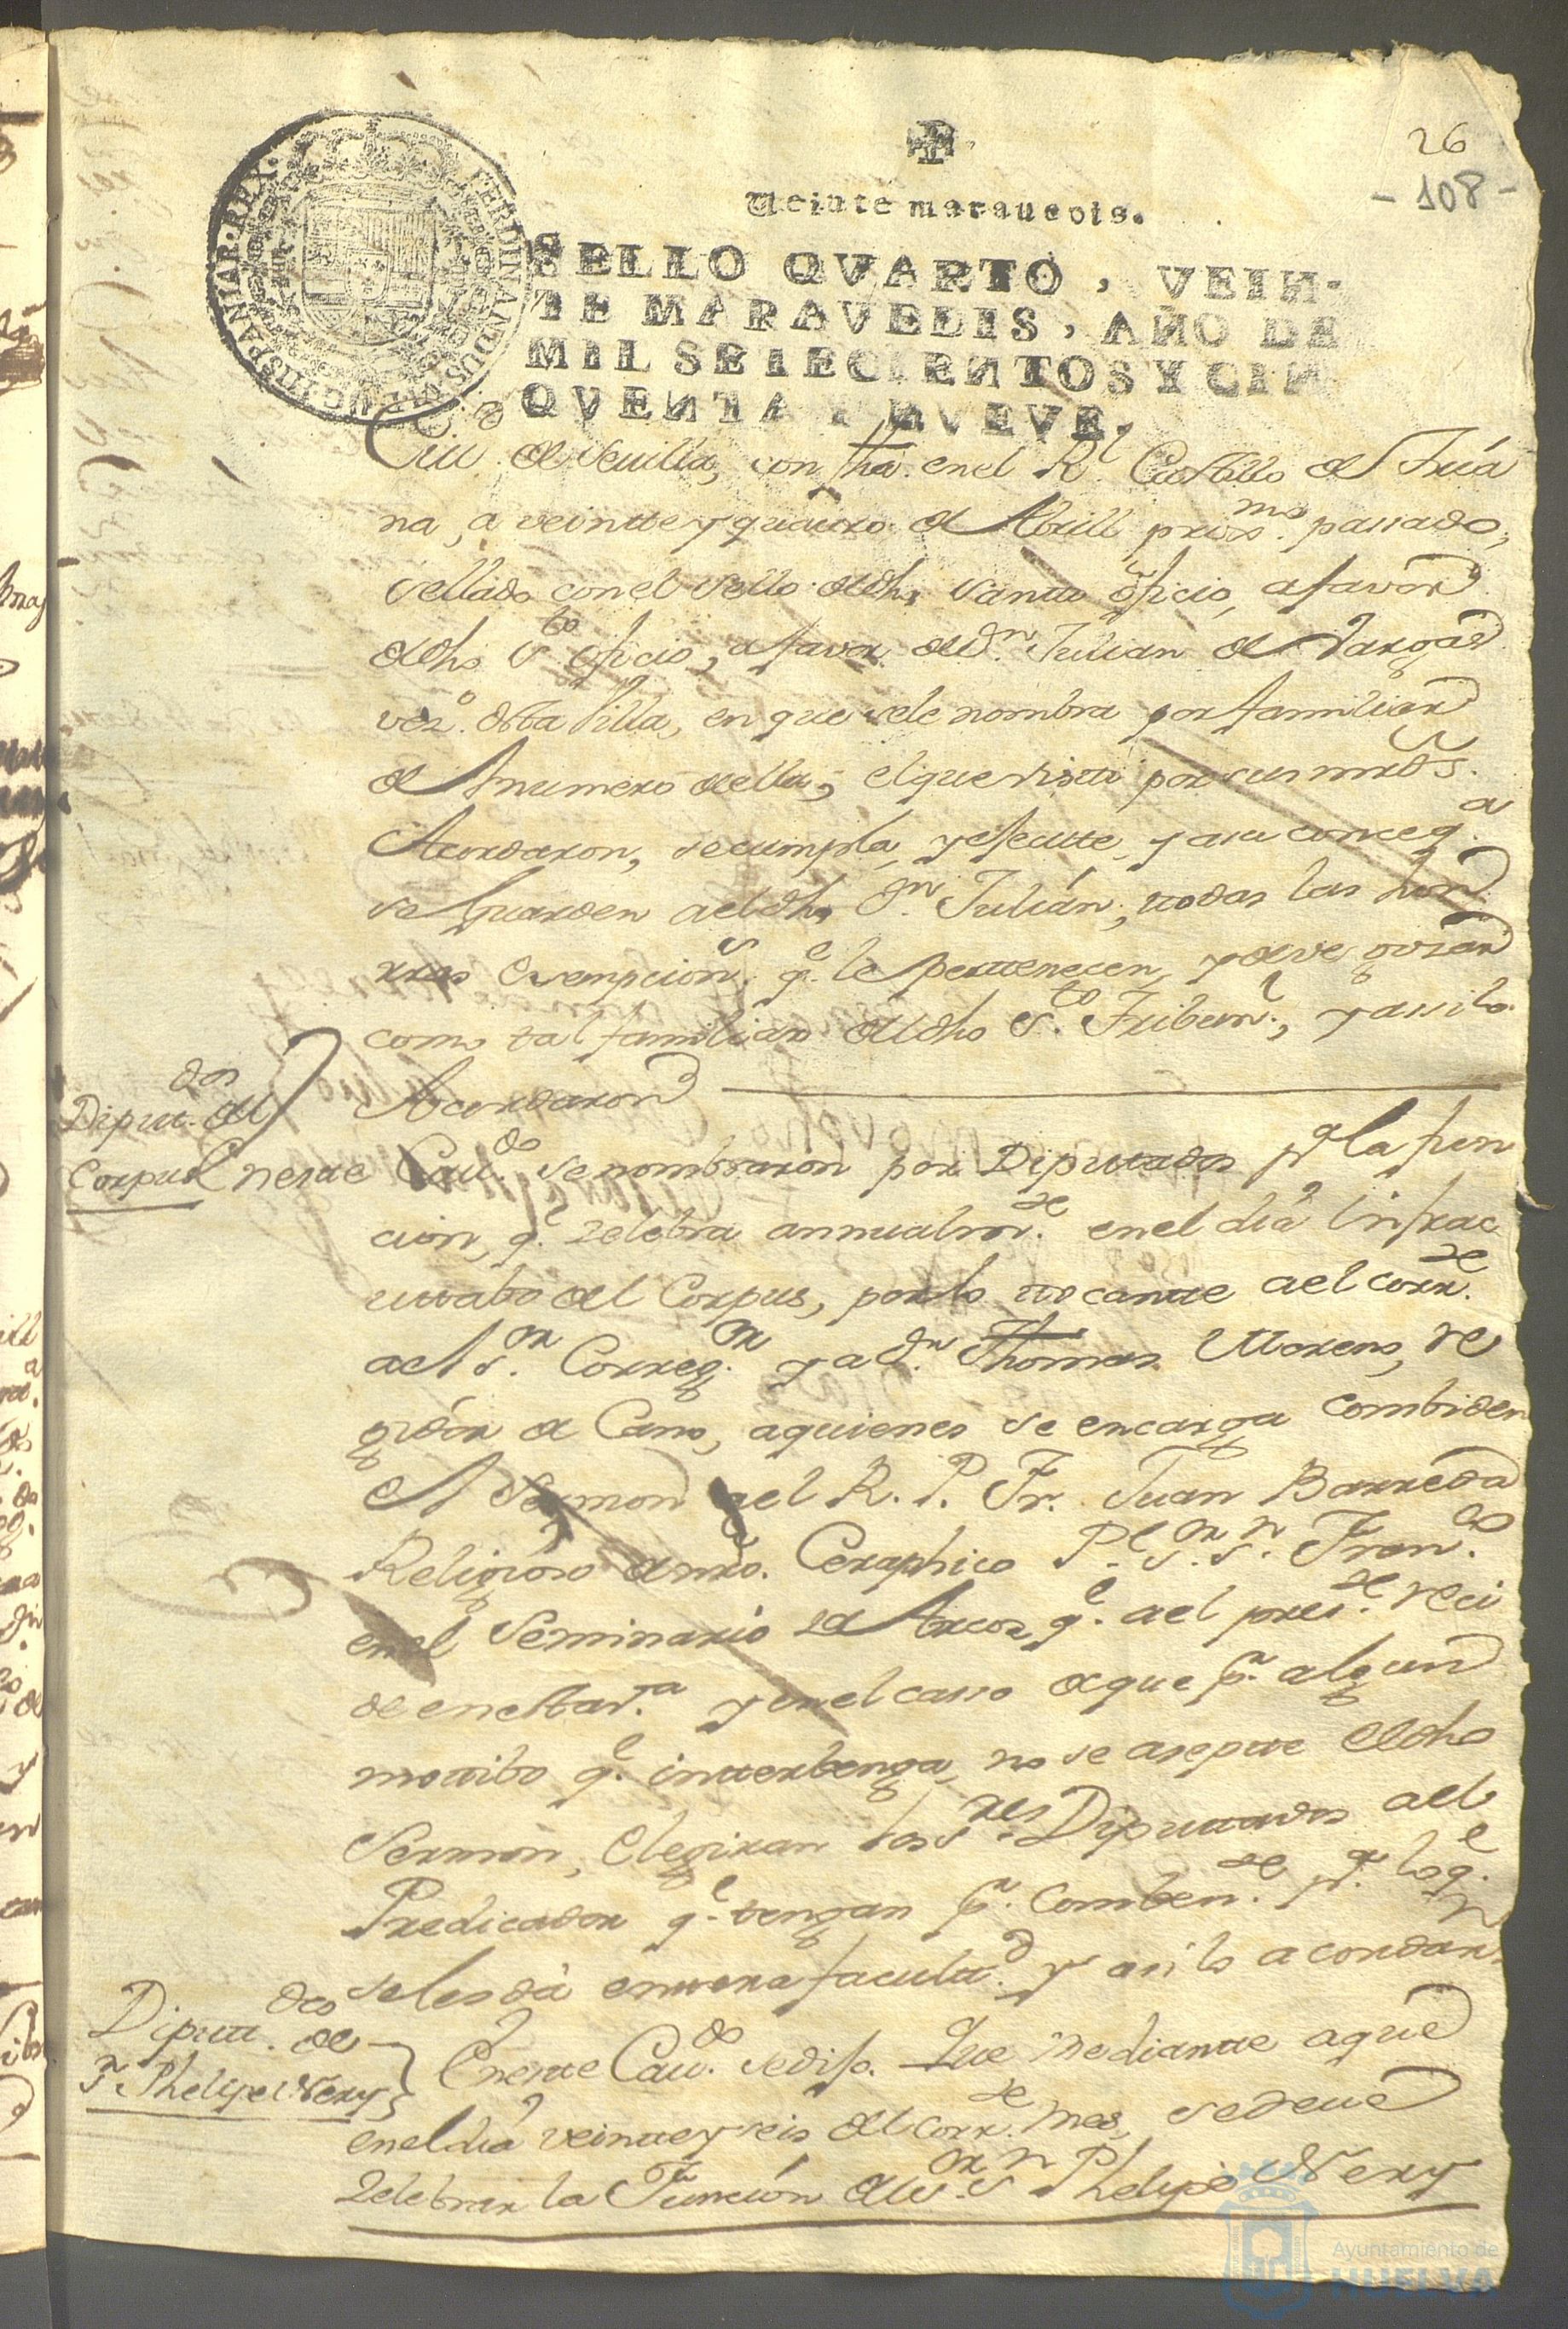 26
- 108 -
Veinte marauedis.
SELLO QVARTO, VEIN-
TE MARAVEDIS, AÑO DE
MIL SETECIENTOS Y CIN
QVENTA Y NVEVE.
FERDINANDUS VI D G HISPANIAR. REX.
Ciu. de Seuilla, con fha. en el Rl. Castillo de Tria
na, a veintte y quattro de Abrill proxmo. passado,
sellado con el sello de dho. santto oficio, a favor
de dho Sto. oficio, a favor de Dn. Julian de Vargas
vezo. desta Villa, en que se le nombra por familiar
del numero de ella; el que visto por sus mrds.
Acordaron, se cumpla, y efecutte, y a su conseqa.
se Guarden a el dho. Dn. Julián, ttodas las hon
rras exempcions. qe. le perttenecen, y deve gozar
como tal familiar de el dho Sto. Tribunl., y assi lo
Acordaron
Diputdos. del
Corpus
En estte Caudo. se nombraron por Diputtados pa. la fun
cion, qe. zelebra annualmte. en el dia infraoc
ttabo del Corpus, por lo ttocantte a el corrte.
a el Sor. Corregor. y a Dn. Thomas Moreno, Re
gidor de Cano, a quienes se encarga combiden
el Sermon a el R. P. Fr. Juan Barreda
Religioso de nro. Ceraphico Pe. Sor. Sn. Franco.
en el Seminario de Arcos, qe. a el preste. reci
de en esta Va. y en el casso de que pr. algun
mottibo qe. intterbenga, no se aseptte el dho
Sermon, Elegiran los Sres. Diputtados a el
Predicador qe. tengan pr. combente. pa. lo qe.
se les dá enttera facultad. y asi lo acordaron
Diputtdos. de
Sn. Phelipe Nery
En estte Caudo. se dijo. Que mediantte a que
en el dia veintte y seis del corrte. mes, se deve
Zelebrar la Función de Sor. Sn Phelipe Nery
Ayuntamiento de
HUELVA